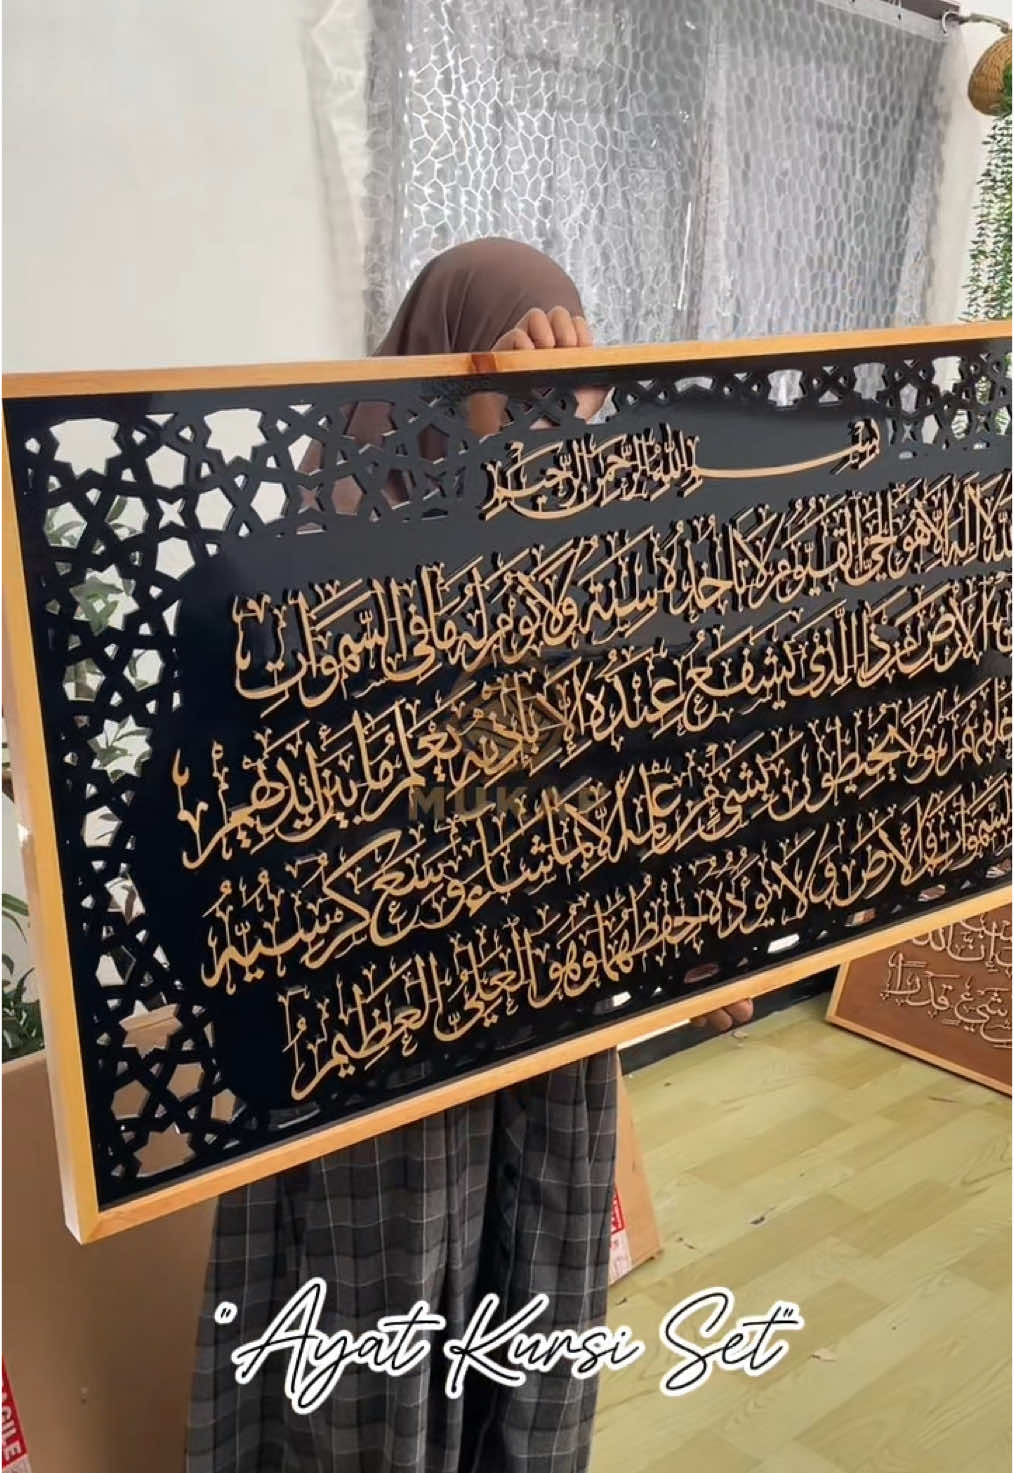 بِسْمِ اللهِ الرَّحْمٰنِ الرَّحِيْمِ
لَا اِلٰهَ اِلَّا هُوَ الْحَيُّ الْقَيُّوْمُ لَا تَاْخُذُهٗ سِنَةٌ وَّلَا نَوْمٌ لَهٗ مَا فِى السَّمٰوَاتِ
الْاَرْضِ مَنْ ذَا الَّذِيْ يَشْفَعُ عِنْدَهٗ اِلَّا بِاِذْنِهٖ يَعْلَمُ مَا بَيْنَ اَيْدِيْهِمْ
خَلْفَهُمْ وَلَا يُحِيْطُوْنَ بِشَيْءٍ مِّنْ عِلْمِهٖ اِلَّا بِمَا شَاءَ وَسِعَ كُرْسِيُّهُ
السَّمٰوَاتِ وَالْاَرْضَ وَلَا يَئُوْدُهٗ حِفْظُهُمَا وَهُوَ الْعَلِيُّ الْعَظِيْمُ
MUKAP
شَيْءٍ قَدْرًا
"Ayat Kursi Set"